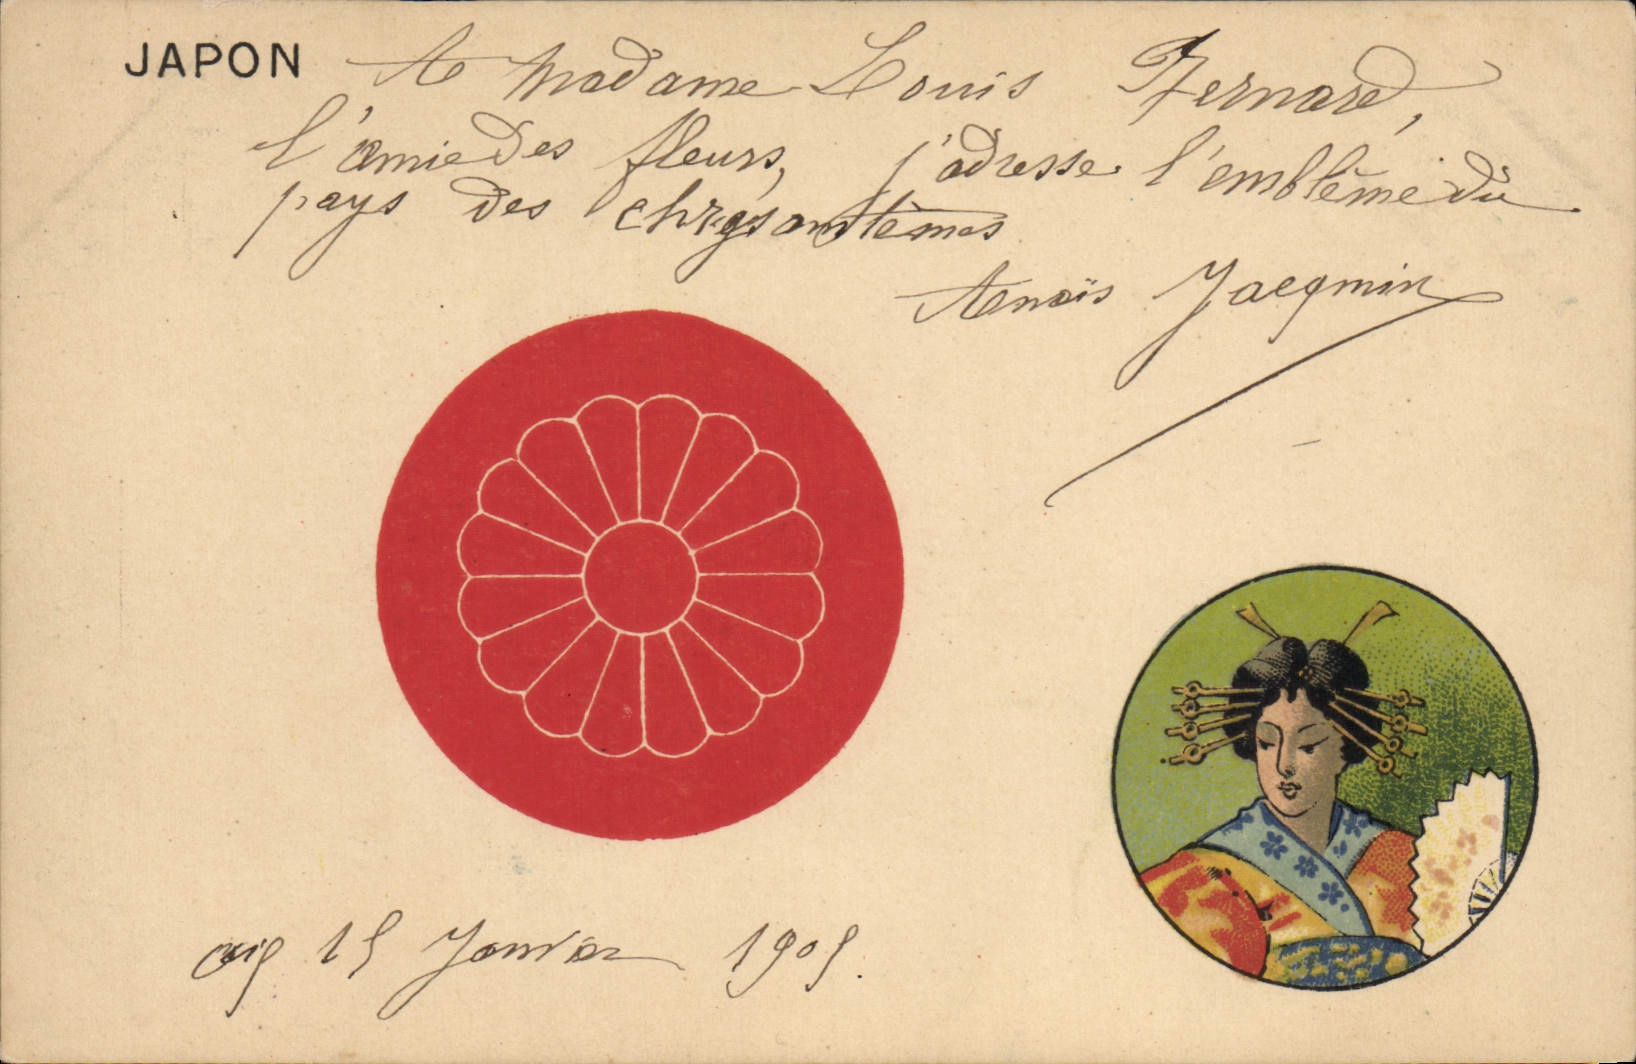 JAPON
A Madame Louis Bernard,
l'amie des fleurs, j'adresse l'emblème du
pays des chrysantèmes
Anaïs Jacqmin
15 Janvier 1905.